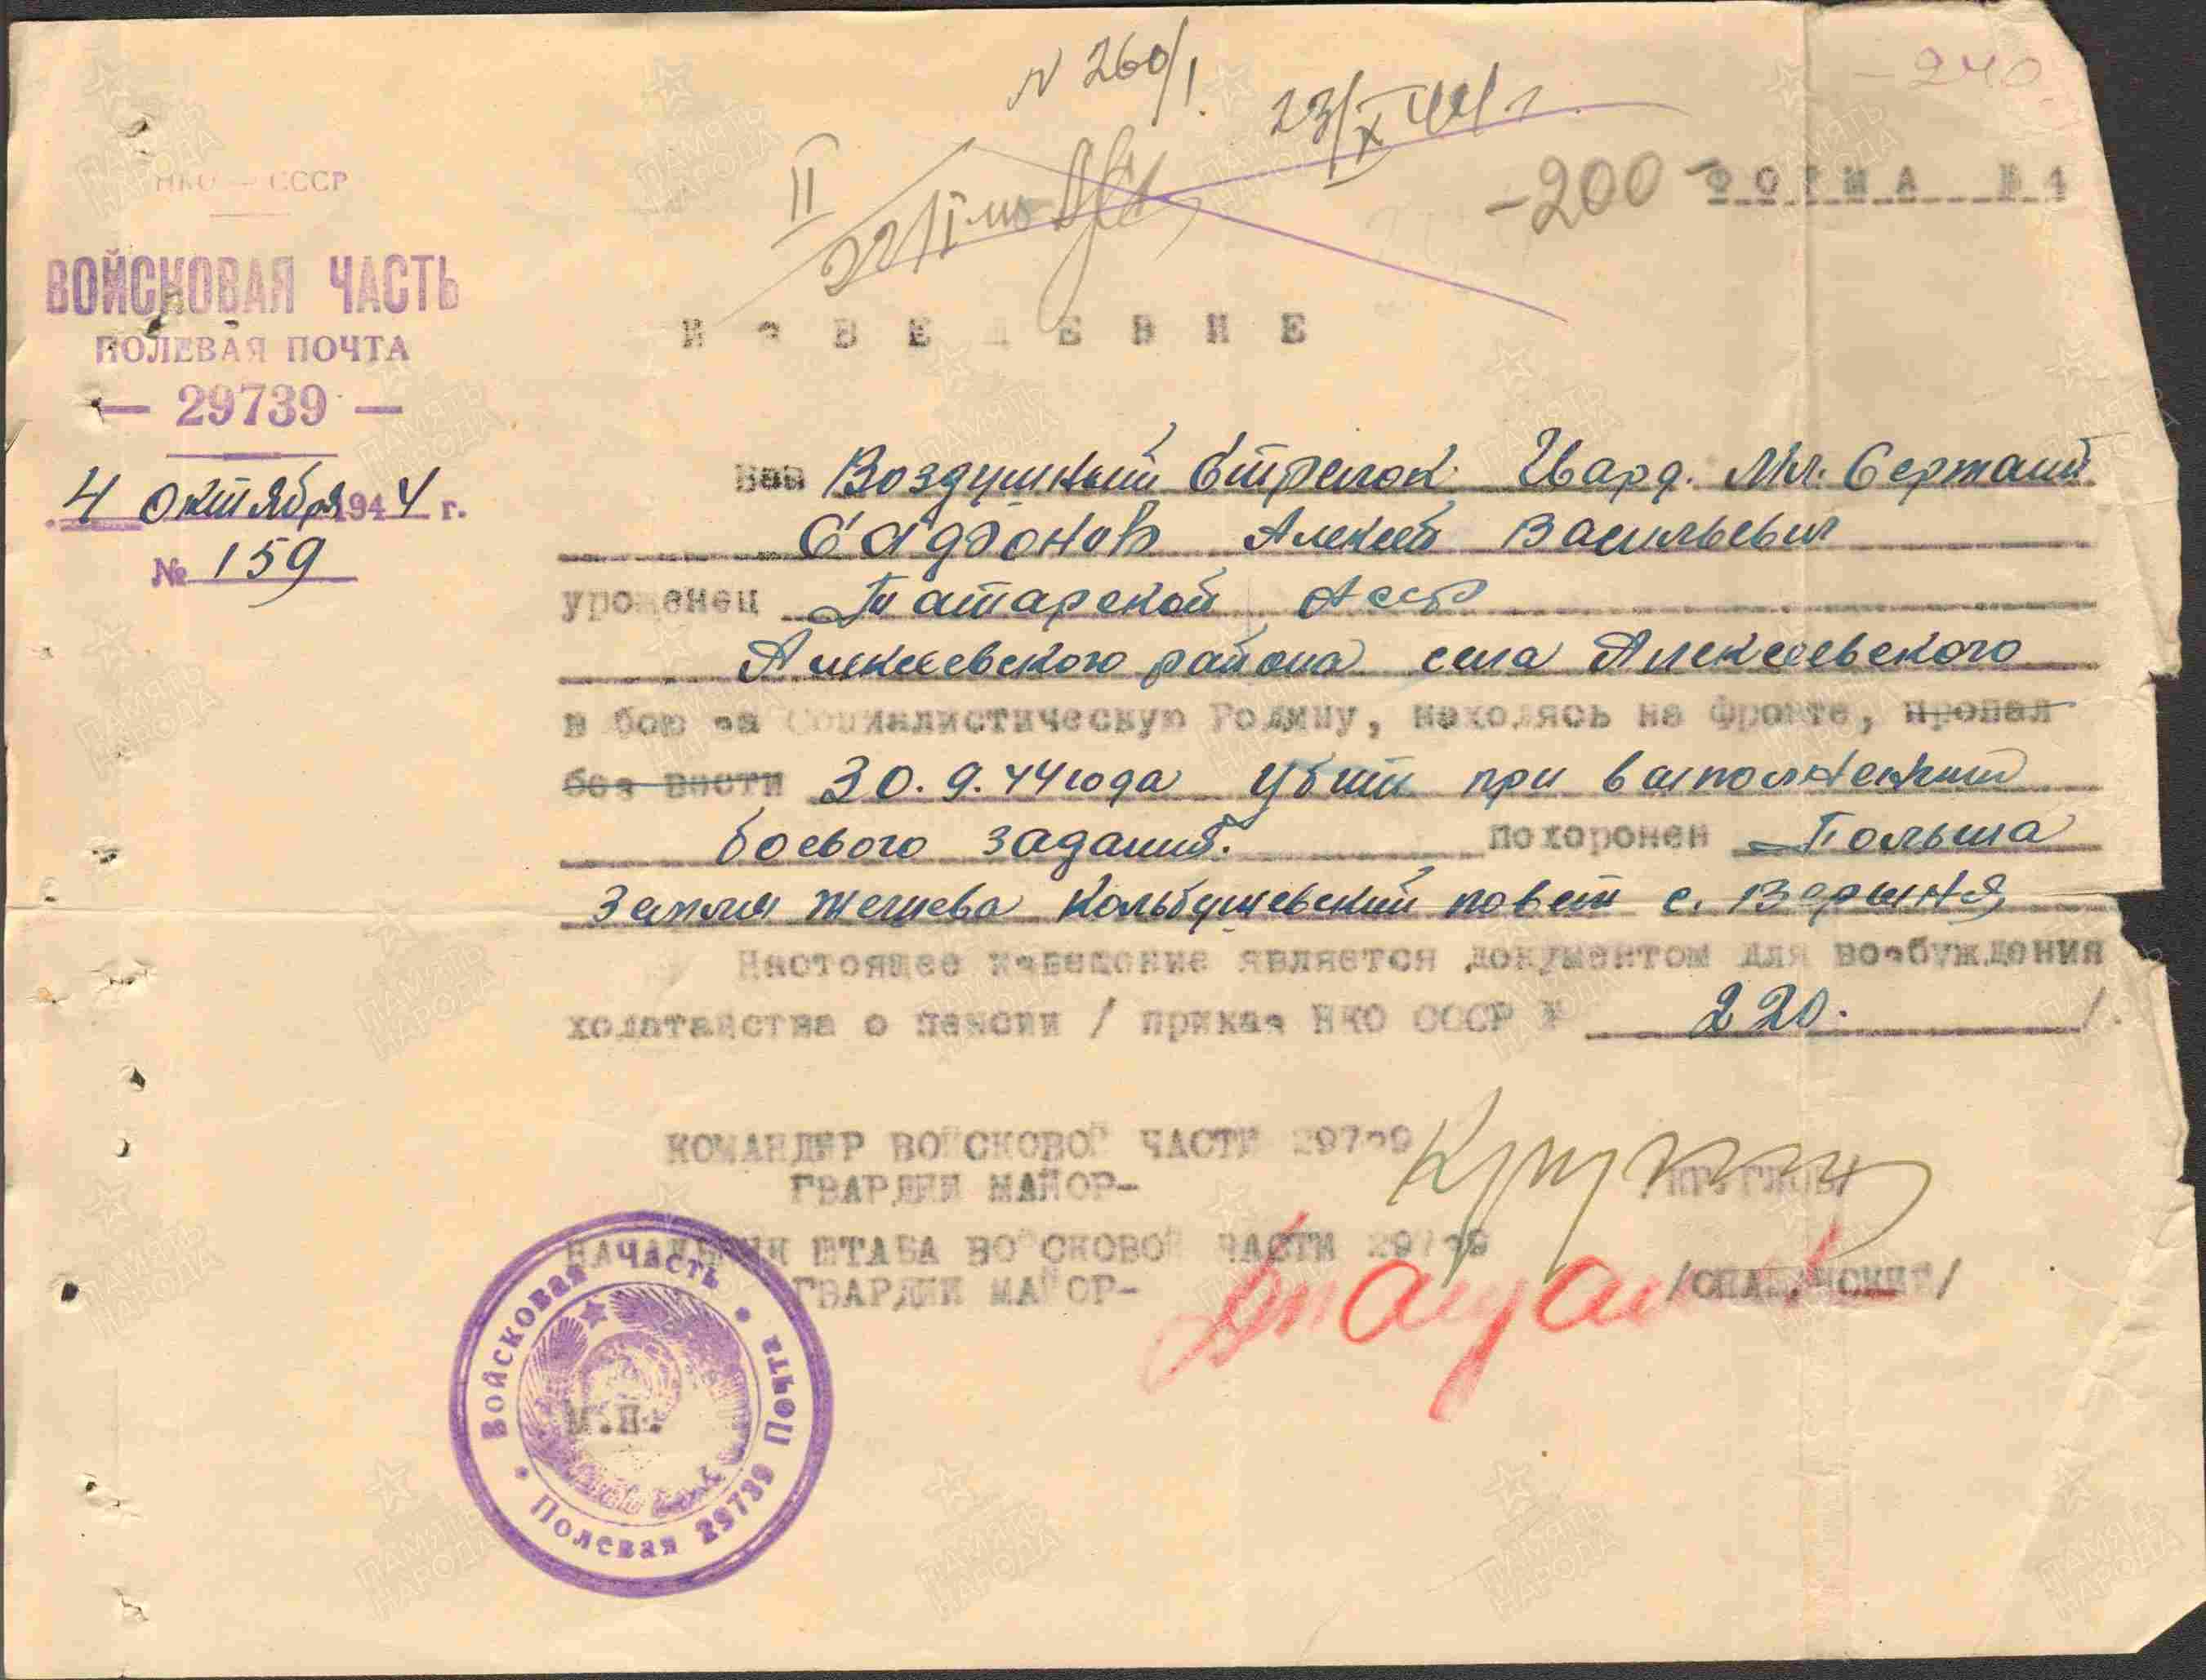 N 260/1.
23/X 44 г.
- 240
II
-200-
ФОРМА №4
НКО — СССР
ВОЙСКОВАЯ ЧАСТЬ
ПОЛЕВАЯ ПОЧТА
— 29739 —
4 Октября 1944 г.
№ 159
ИЗВЕЩЕНИЕ
Ваш Воздушный Стрелок Гвард. Мл. Сержант
Сафонов Алексей Васильевич
уроженец Татарской АССР
Алексеевского района села Алексеевского
в бою за Социалистическую Родину, находясь на фронте, пропал
без вести 30.9.44 года Убит при выполнении
боевого задания. похоронен Польша
Земля Жешева Кольбушевский повет с. Верыня
Настоящее извещение является документом для возбуждения
ходатайства о пенсии / приказ НКО СССР № 220. /.
КОМАНДИР ВОЙСКОВОЙ ЧАСТИ 29739
ГВАРДИИ МАЙОР-
НАЧАЛЬНИК ШТАБА ВОЙСКОВОЙ ЧАСТИ 29739
ГВАРДИИ МАЙОР-
М.П.
Войсковая часть • Полевая 29739 Почта •
ПАМЯТЬ НАРОДА